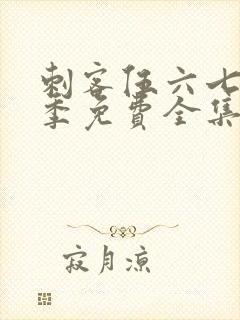 刺客伍六七
季免费全集
寂月凉